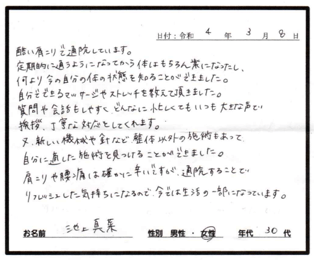 日付:令和 4 年 3 月 8 日
酷い肩こりで通院しています。
定期的に通うようになってから体はもちろん楽になったし、
何より今の自分の体の状態を知ることができました。
自分でできるマッサージやストレッチを教えて頂きました。
質問や会話もしやすく どんなに忙しくてもいつも大きな声で
挨拶、丁寧な対応をしてくれます。
又、新しい機械や針など整体以外の施術もあって
自分に適した施術を見つけることができました。
肩こりや腰痛は確かに辛いですが、通院することで
リフレッシュした気持ちになるので、今では生活の一部になっています。
お名前 池上真菜 性別 男性・女性 年代 30 代